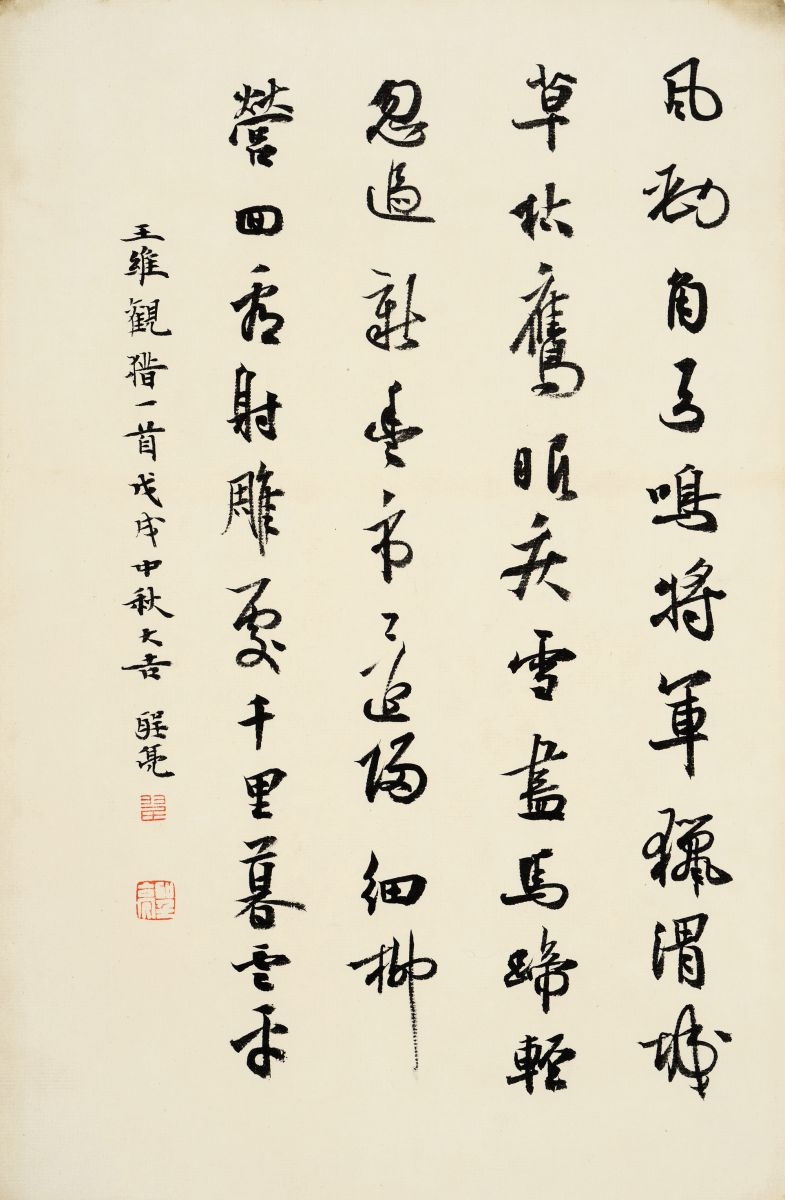 風勁角弓鳴將軍獵渭城
草枯鷹眼疾雪盡馬蹄輕
忽過新豐市還歸細柳
營回看射雕處千里暮雲平
王維觀猎一首戊戌中秋大吉 亮